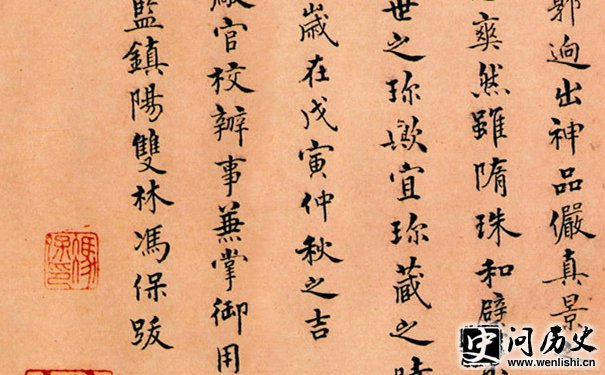 郭逈出神品儼真景
爽然雖隋珠和璧
世之珎歟宜珎藏之時
歲在戊寅仲秋之吉
廠官校辦事兼掌御用
監鎮陽雙林馮保跋
史 问历史
www.wenlishi.cn